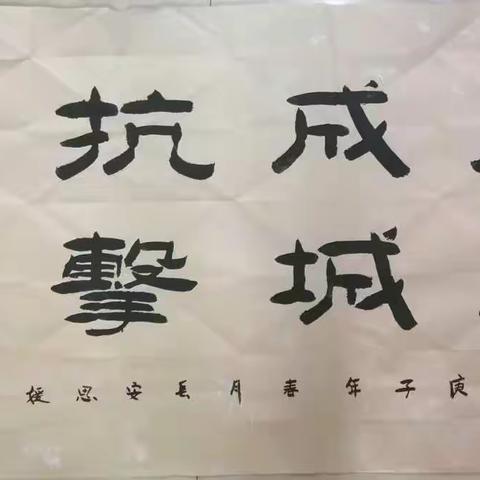 成城
抗擊
庚子年春月長安思媛